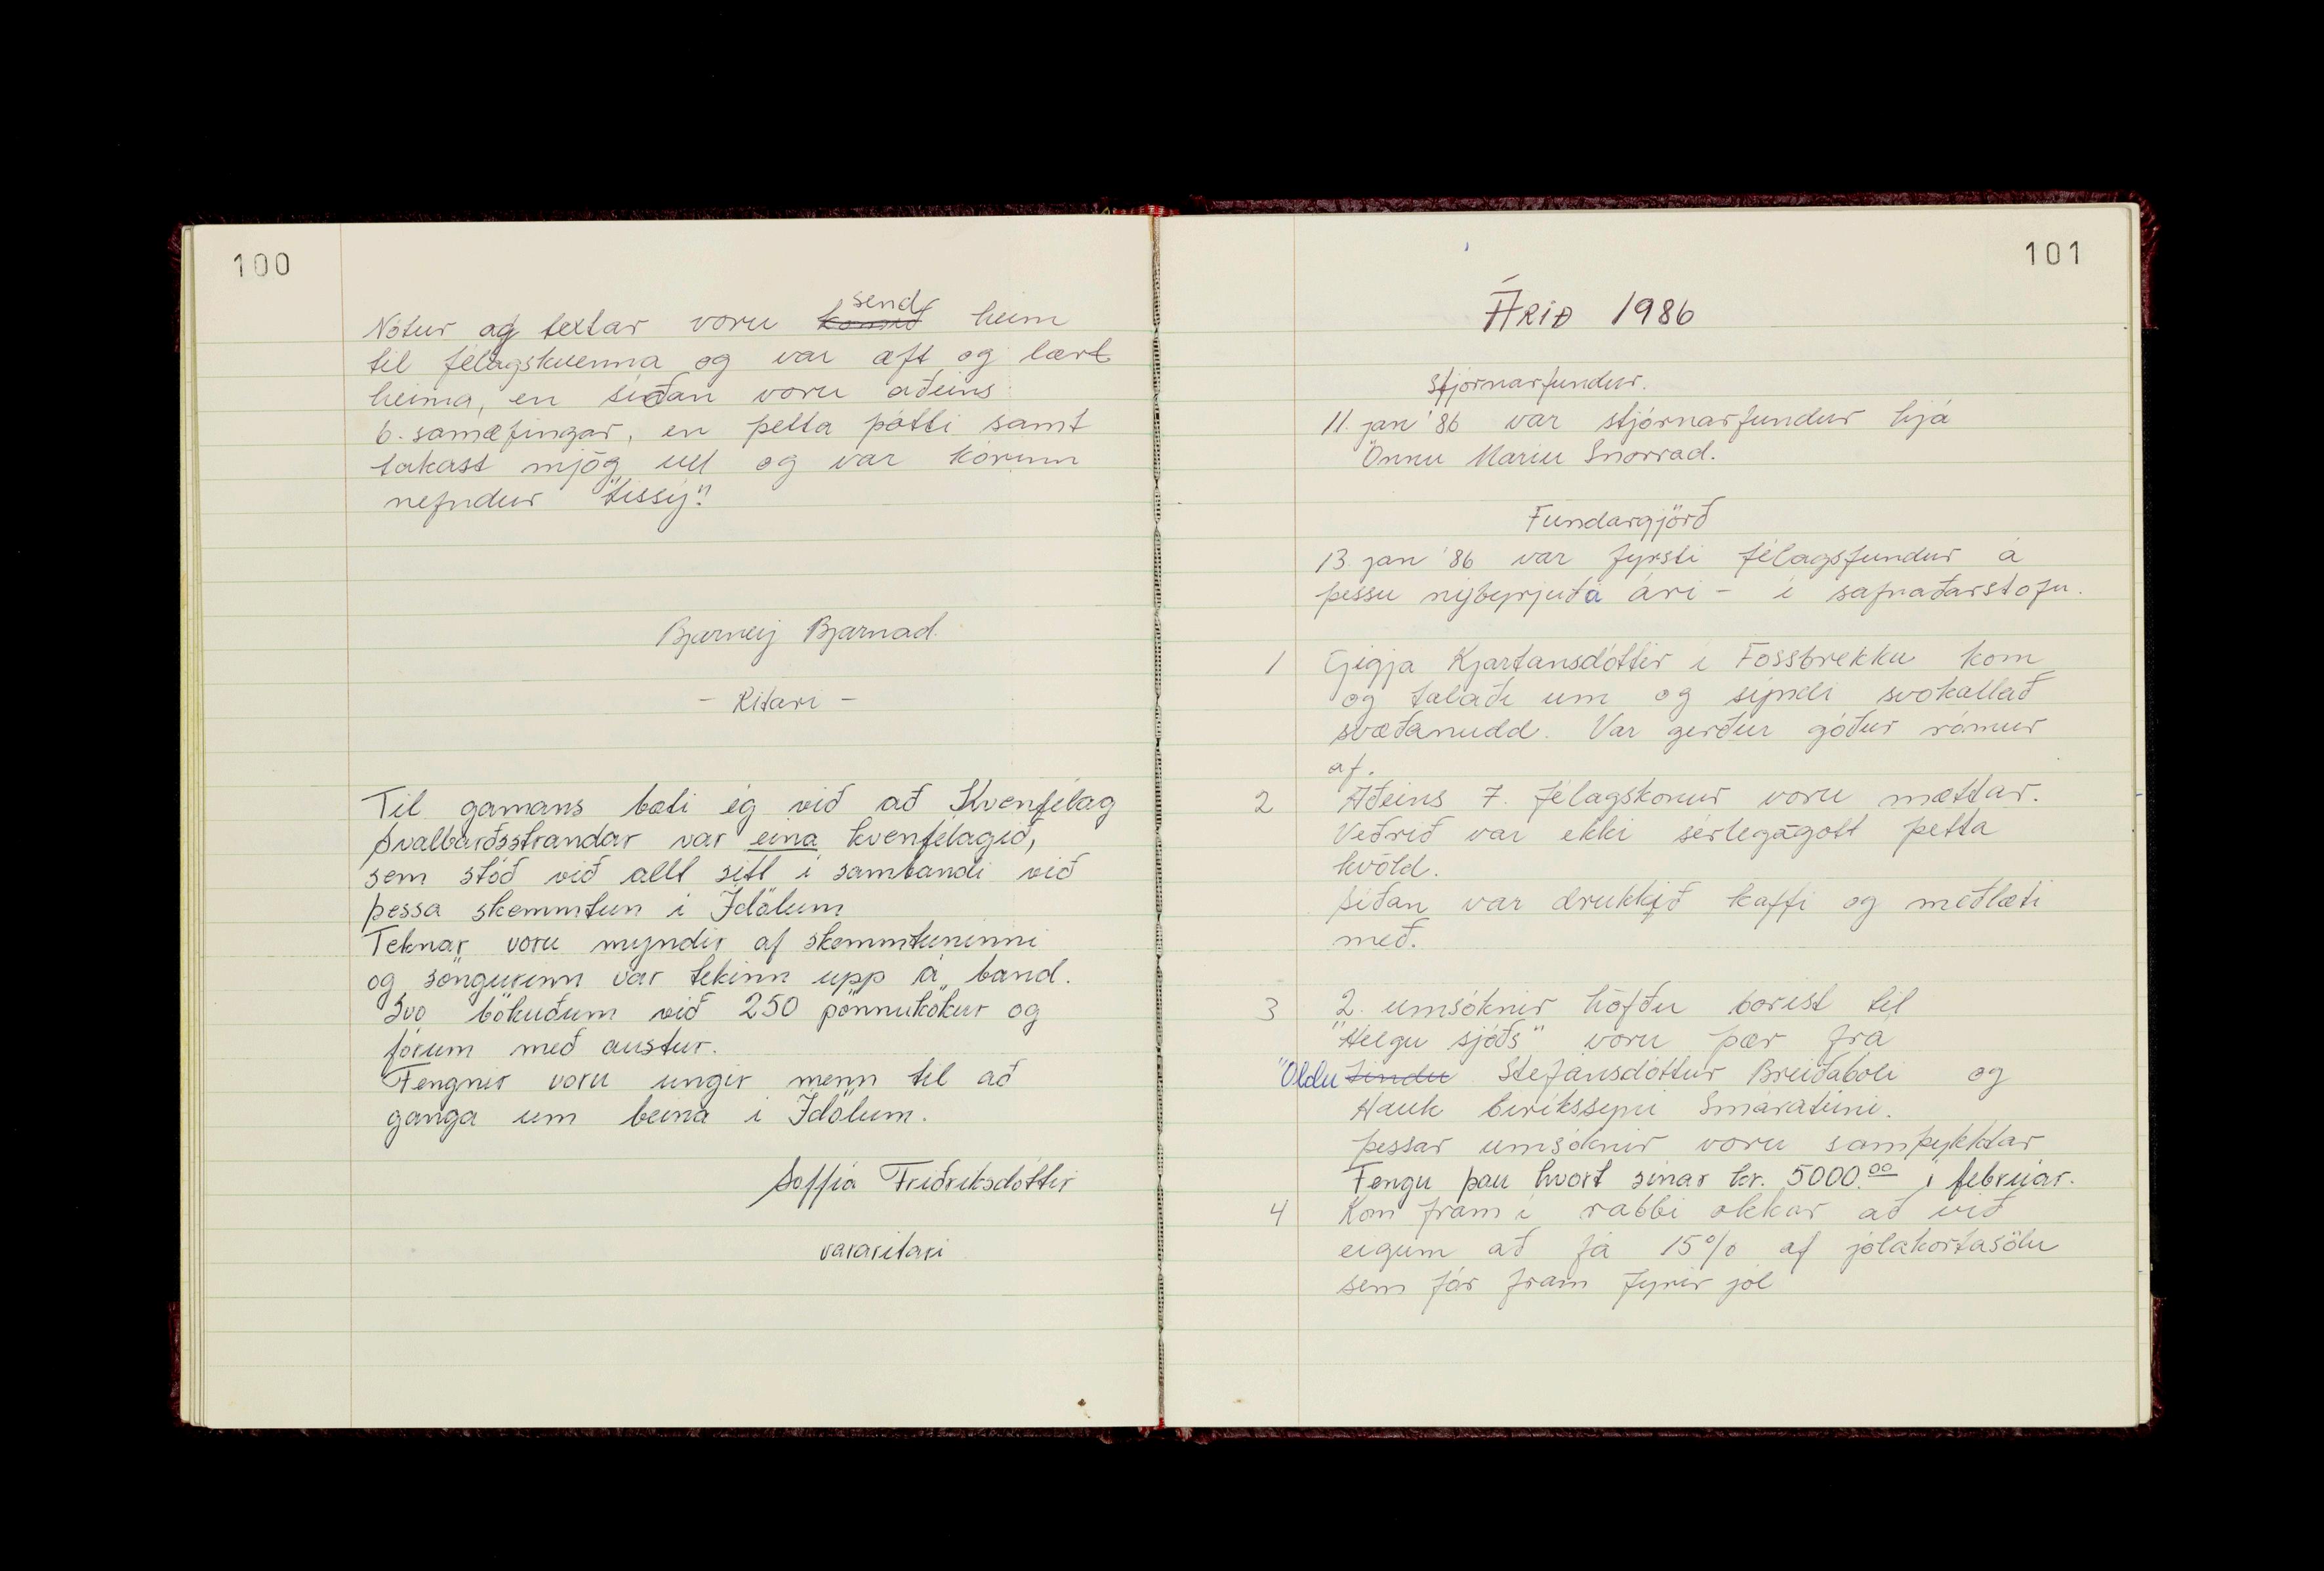 100
Nótur og textar voru send heim
til félagskvenna og var æft og lært
heima, en síðan voru aðeins
6. samæfingar, en þetta þótti samt
takast mjög vel og var kórinn
nefndur "Lissý".
Bjarney Bjarnad.
- Ritari -
Til gamans bæti ég við að Kvenfélag
Svalbarðsstrandar var eina kvenfélagið,
sem stóð við allt sitt í sambandi við
þessa skemmtun í Ídölum
Teknar voru myndir af skemmtuninni
og söngurinn var tekinn upp á band.
Svo bökuðum við 250 pönnukökur og
fórum með austur.
Fengnir voru ungir menn til að
ganga um beina í Ídölum.
Soffía Friðriksdóttir
vararitari
101
ÁRIÐ 1986
Stjórnarfundur.
11. jan '86 var stjórnarfundur hjá
Önnu Maríu Snorrad.
Fundargjörð
13. jan '86 var fyrsti félagsfundur á
þessu nýbyrjuða ári - í safnaðarstofu.
1 Gígja Kjartansdóttir í Fossbrekku kom
og talaði um og sýndi svokallað
svæðanudd. Var gerður góður rómur
af.
2 Aðeins 7. félagskonur voru mættar.
Veðrið var ekki sérlega gott þetta
kvöld.
Síðan var drukkið kaffi og meðlæti
með.
3 2. umsóknir höfðu borist til
"Helgu sjóðs" voru þær frá
Öldu Lindu Stefánsdóttur Breiðabóli og
Hauk Eiríkssyni Smáratúni.
Þessar umsóknir voru samþykktar
Fengu þau hvort sínar kr. 5000.00 í febrúar.
4 Kom fram í rabbi okkar að við
eigum að fá 15% af jólakortasölu
sem fór fram fyrir jól